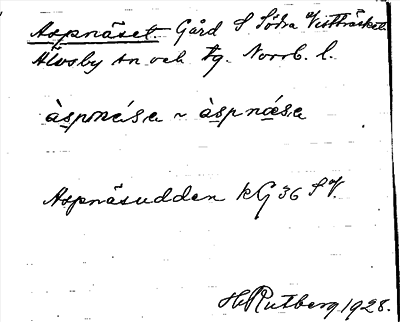 Aspnäset. Gård S Södra Vistträsket.
Älvsby sn och tg. Norrb. l.
àspnǽsa ~ àspnǽsa
Aspnäsudden kG 36 SV.
H. Rutberg 1928.